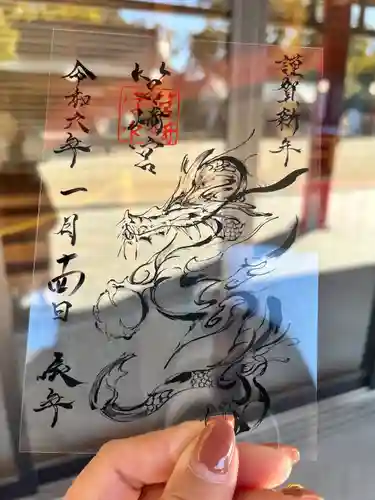 謹賀新年
筥崎宮
令和六年
一月十四日
辰年